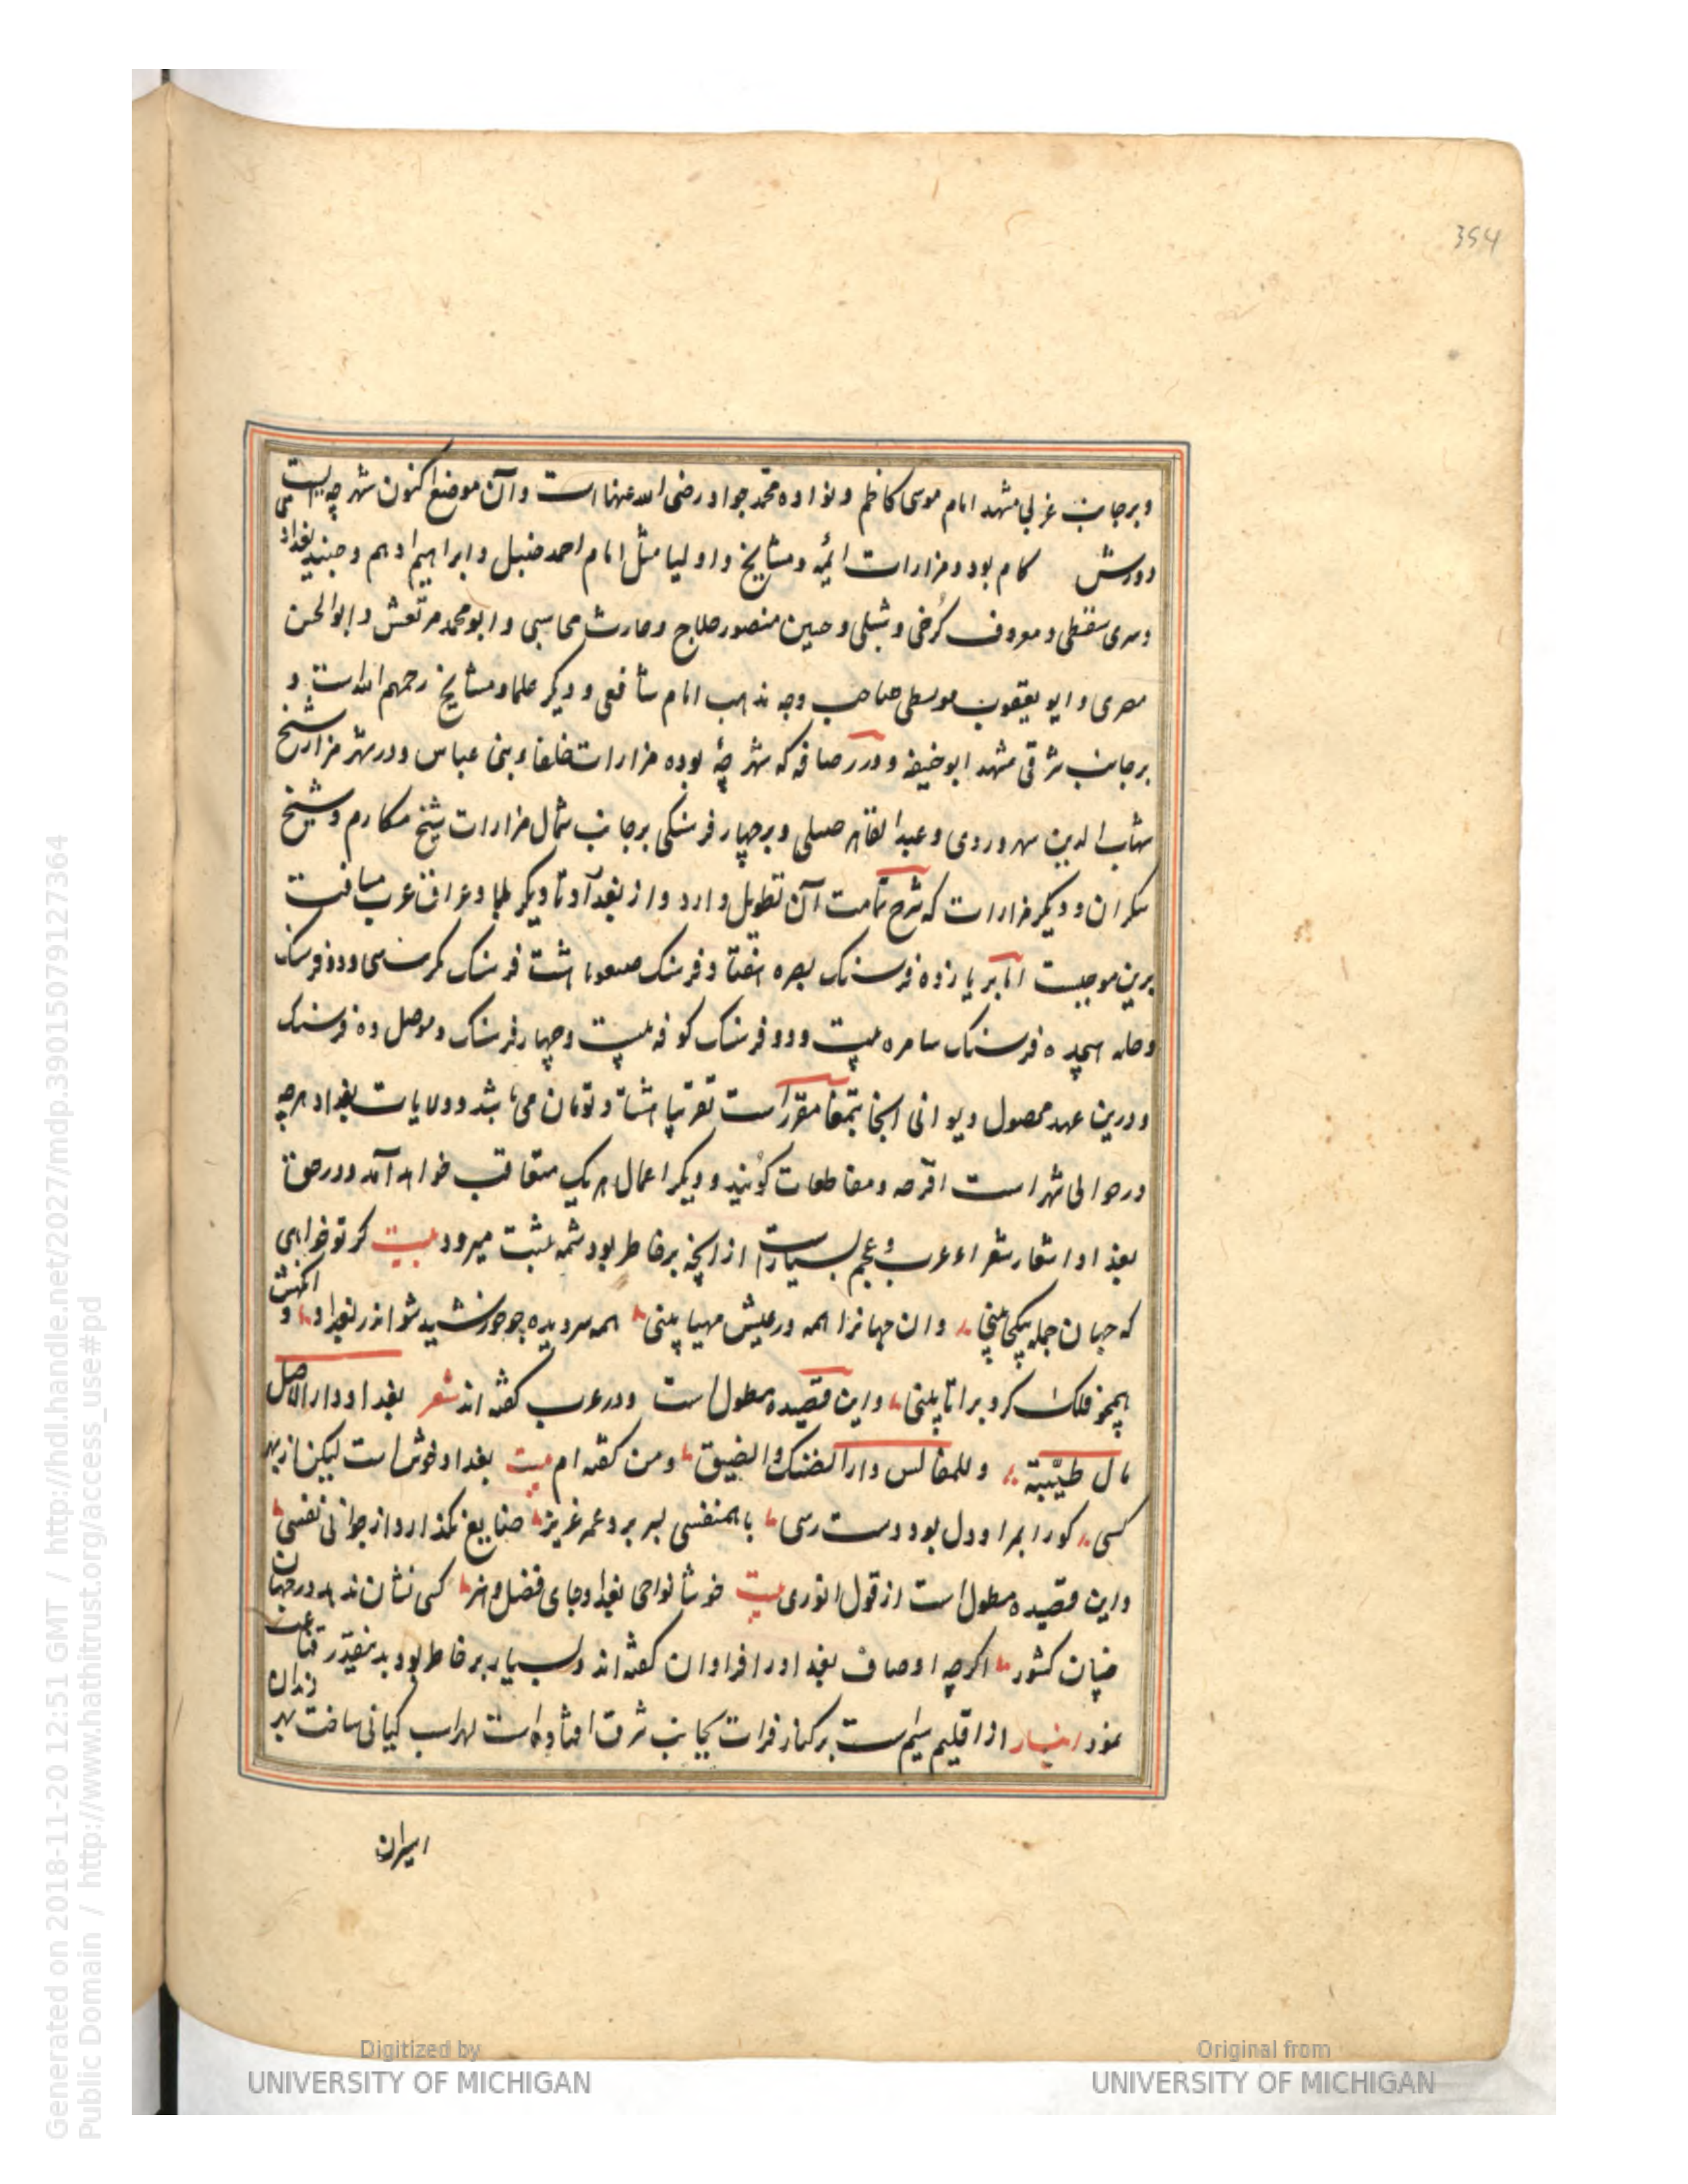 354
وبرجانب غربی مشهد امام موسی کاظم ونواده محمد جواد رضی الله عنهما است وآن موضع اکنون شهرچه ایست می
دورش کام بود ومزارات ائمه ومشایخ واولیا مثل امام احمد حنبل وابراهیم ادهم وجنید بغداد
وسری سقطی ومعروف کرخی وشبلی وحسین منصور حلاج وحارث محاسبی وابو محمد مرتعش وابوالحسن
مصری وابو یعقوب موسطی صاحب وجه مذهب امام شافعی ودیگر علما ومشایخ رحمهم الله است و
برجانب شرقی مشهد ابوحنیفه ودر رصافه که شهرچهٔ بوده مزارات خلفاء بنی عباس ودر شهر مزار شیخ
شهاب الدین سهروردی وعبد القاهر صبلی وبرچهار فرسنکی برجانب شمال مزارات شیخ مکارم وشیخ
سکران ودیکر مزارات که شرح تمامت آن تطویل دارد واز بغداد تا دیکر بلاد عراق عرب مسافت
برین موجبست انابر یازده فرسنک بصره هفتاد فرسنک هشت فرسنک ودو فرسنک
وحله هیجده فرسنک سامره بیست ودو فرسنک کوفه بیست وچهار فرسنک وموصل ده فرسنک
ودرین عهد محصول دیوانی انجا بتمغا مقرر است تقریبا هشتاد تومان می باشد وولایات بغداد هرچه
در حوالی شهر است اقرحه ومقاطعات کویند ودیکر اعمال هریک متعاقب خواهد آمد ودر حق
بغداد اشعار شعراء عرب وعجم بسیار است از انچه برخاطر بود شمه مثبت میرود بیت کر تو خواهی
که جهان جمله بیکجا بینی وان جهانرا همه در عیش مهیا بینی همه سر دیده چو خورشید شو اندر بغداد و انکهش
همچو فلک کرد برا تا بینی واین قصیده مطول است ودر عرب کفته اند شعر بغداد دار لاهل
مال طیّبة وللمفالس دار الضنک والضیق ومن کفته ام بیت بغداد خوش است لیکن از بهر
کسی کورا بمراد دل بود دست رسی با همنفسی بسر برد عمر عزیز ضایع نکذارد از جوانی نفسی
واین قصیده مطول است از قول انوری بیت خوشا نواحی بغداد جای فضل وهنر کسی نشان ندهد در جهان
چنان کشور اکرچه اوصاف بغداد را فراوان کفته اند وبسیار برخاطر بود بدینقدر قناعت
نمود انبار از اقلیم سیم است برکنار فرات بجانب شرق افتاده است لهراسب کیانی ساخت بهر زندان
اسیران
Digitized by
UNIVERSITY OF MICHIGAN
Original from
UNIVERSITY OF MICHIGAN
Generated on 2018-11-20 12:51 GMT / http://hdl.handle.net/2027/mdp.39015079127364
Public Domain / http://www.hathitrust.org/access_use#pd